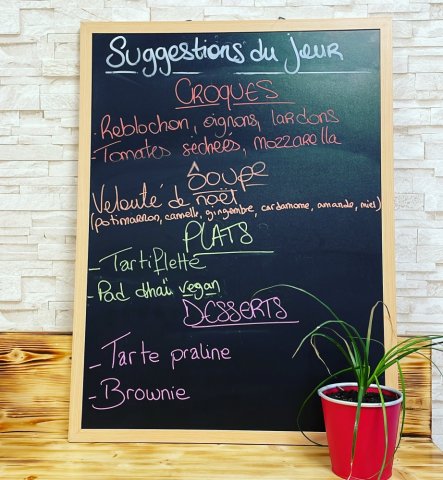 Suggestions du jour
CROQUES
- Reblochon, oignons, lardons
- Tomates sechées, mozzarella
Soupe
Velouté de noët
(potimarron, cannelle, gingembre, cardamome, amande, miel)
PLATS
- Tartiflette
- Pad dhaï vegan
DESSERTS
- Tarte praline
- Brownie